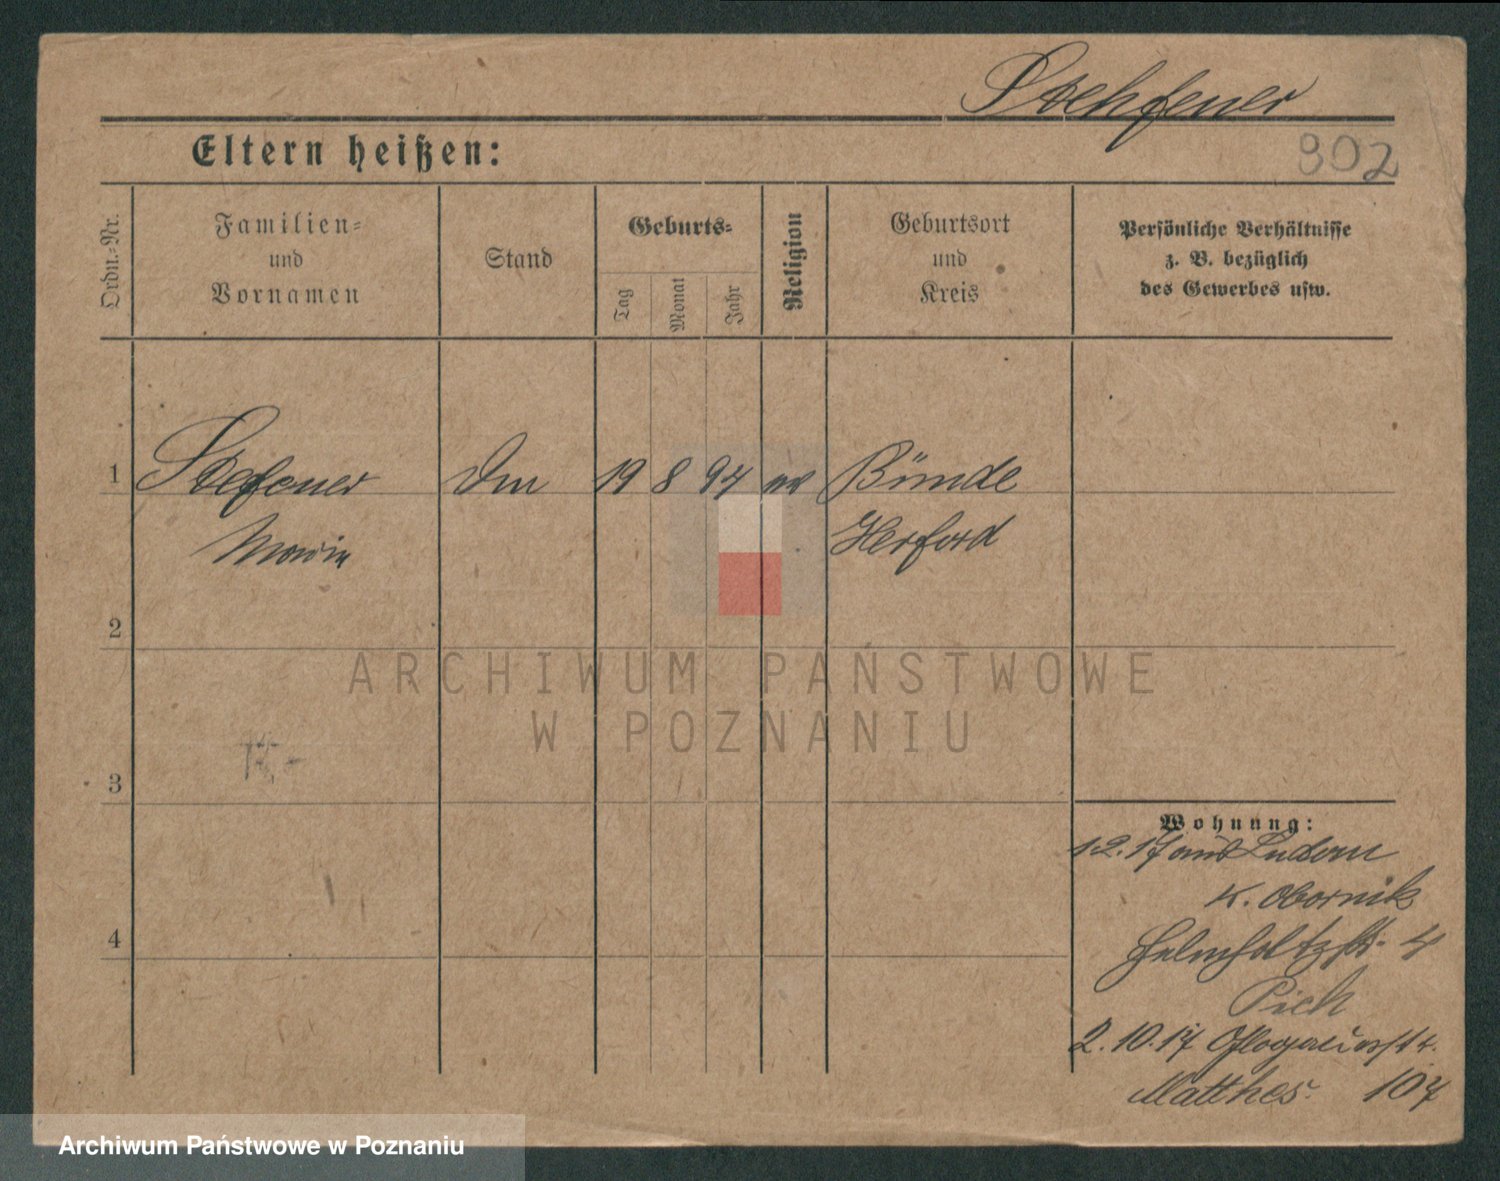 Stehfener
Eltern heißen:
302
Ordn.-Nr.
Familien-
und
Vornamen
Stand
Geburts-
Tag
Monat
Jahr
Religion
Geburtsort
und
Kreis
Persönliche Verhältnisse
z. B. bezüglich
des Gewerbes usw.
1 19 8 94 ev Bünde
Maria Herford
2
ARCHIWUM PAŃSTWOWE
W POZNANIU
3
Wohnung:
12.17 aus Ludom
K. Obornik
4
Helmholtzstr. 4
Pich
2.10.17 Glogauerstr.
Matthes. 107
Archiwum Państwowe w Poznaniu